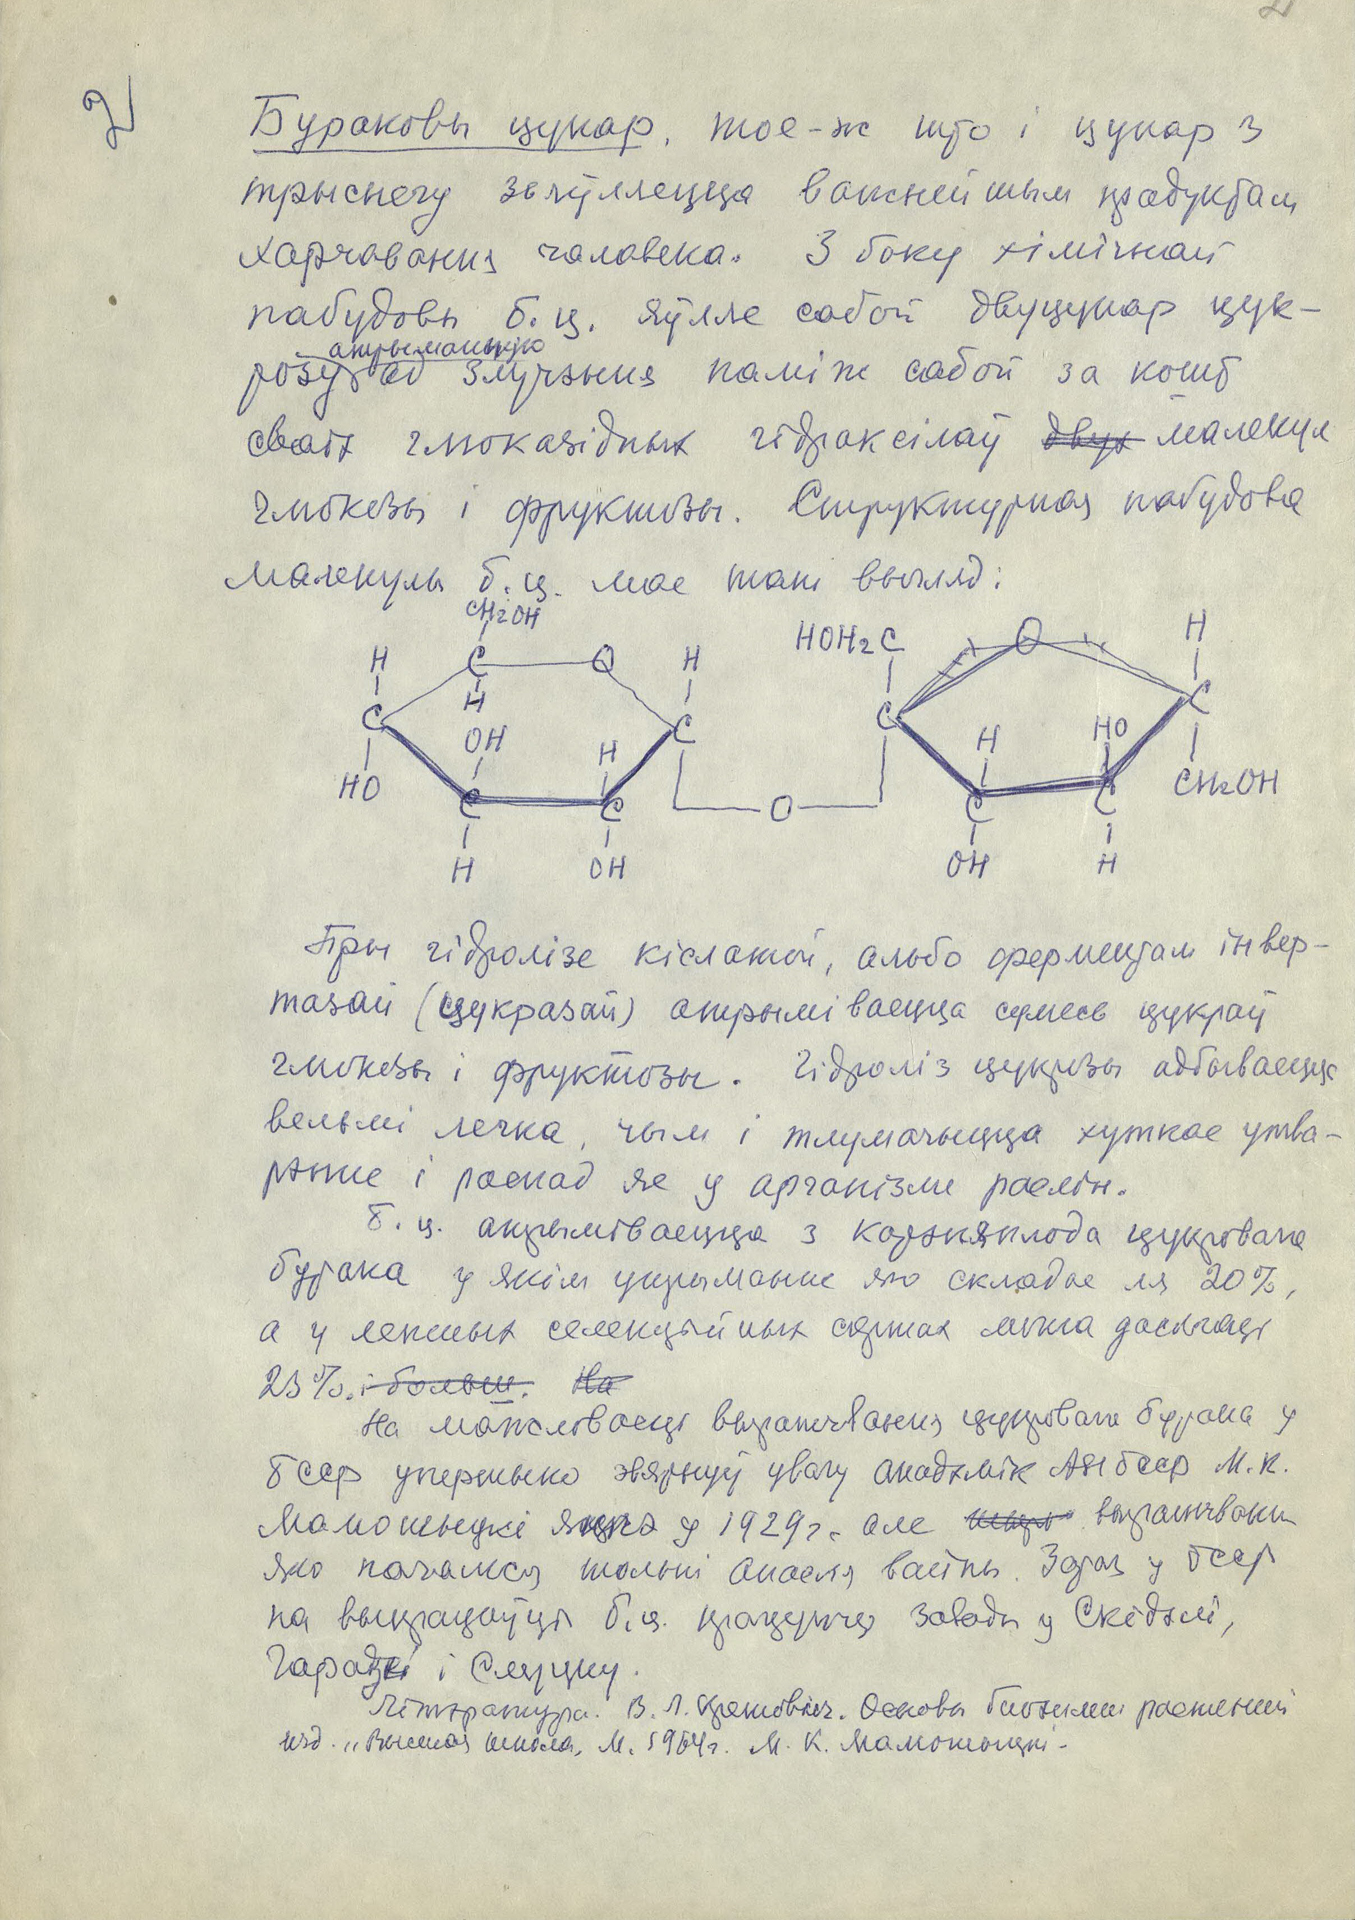 2
2
Бураковы цукар, тое-ж што і цукар з
трыснегу зьяўляецца важнейшым прадуктам
харчаваньня чалавека. З боку хімічнай
пабудовы б.ц. яўляе сабой двуцукар цук-
атрыманую
розу ад злучэньня паміж сабой за кошт
сваіх глюказідных гідраксілаў двух малекул
глюкозы і фруктозы. Структурная пабудова
малекулы б.ц. мае такі выгляд:
CH2OH HOH2C O H
H C O H
H C C C
C OH H H HO
HO CH2OH
C C O C C
H OH OH H
Пры гідролізе кіслатой, альбо ферментам інвер-
тазай (цукразай) атрымліваецца сумесь цукраў
глюкозы і фруктозы. Гідроліз цукрозы адбываецца
вельмі легка, чым і тлумачыцца хуткае утва-
рэньне і распад яе у арганізме расьлін.
Б.ц. атрымліваецца з карэняплода цукровага
бурака у якім утрыманьне яго складае ля 20%,
а у лепшых селекцыйных сартах можа дасягаць
23%. і больш. На
На мажлівасці вырошчваньня цукровага бурака у
БССР упершыню звярнуў увагу акадэмік АН БССР М.К.
Малюшыцкі яшчэ у 1929 г. але вырошчваньне
яго пачалося толькі апасля вайны. Зараз у БССР
па вытворчасці б.ц. працуюць заводы у Скідэлі,
Гарадзеі і Слуцку.
Літэратура. В.Л. Кретович. Основы биохимии растений
изд. „Высшая школа, М. 1964 г. М.К. Малюшыцкі-